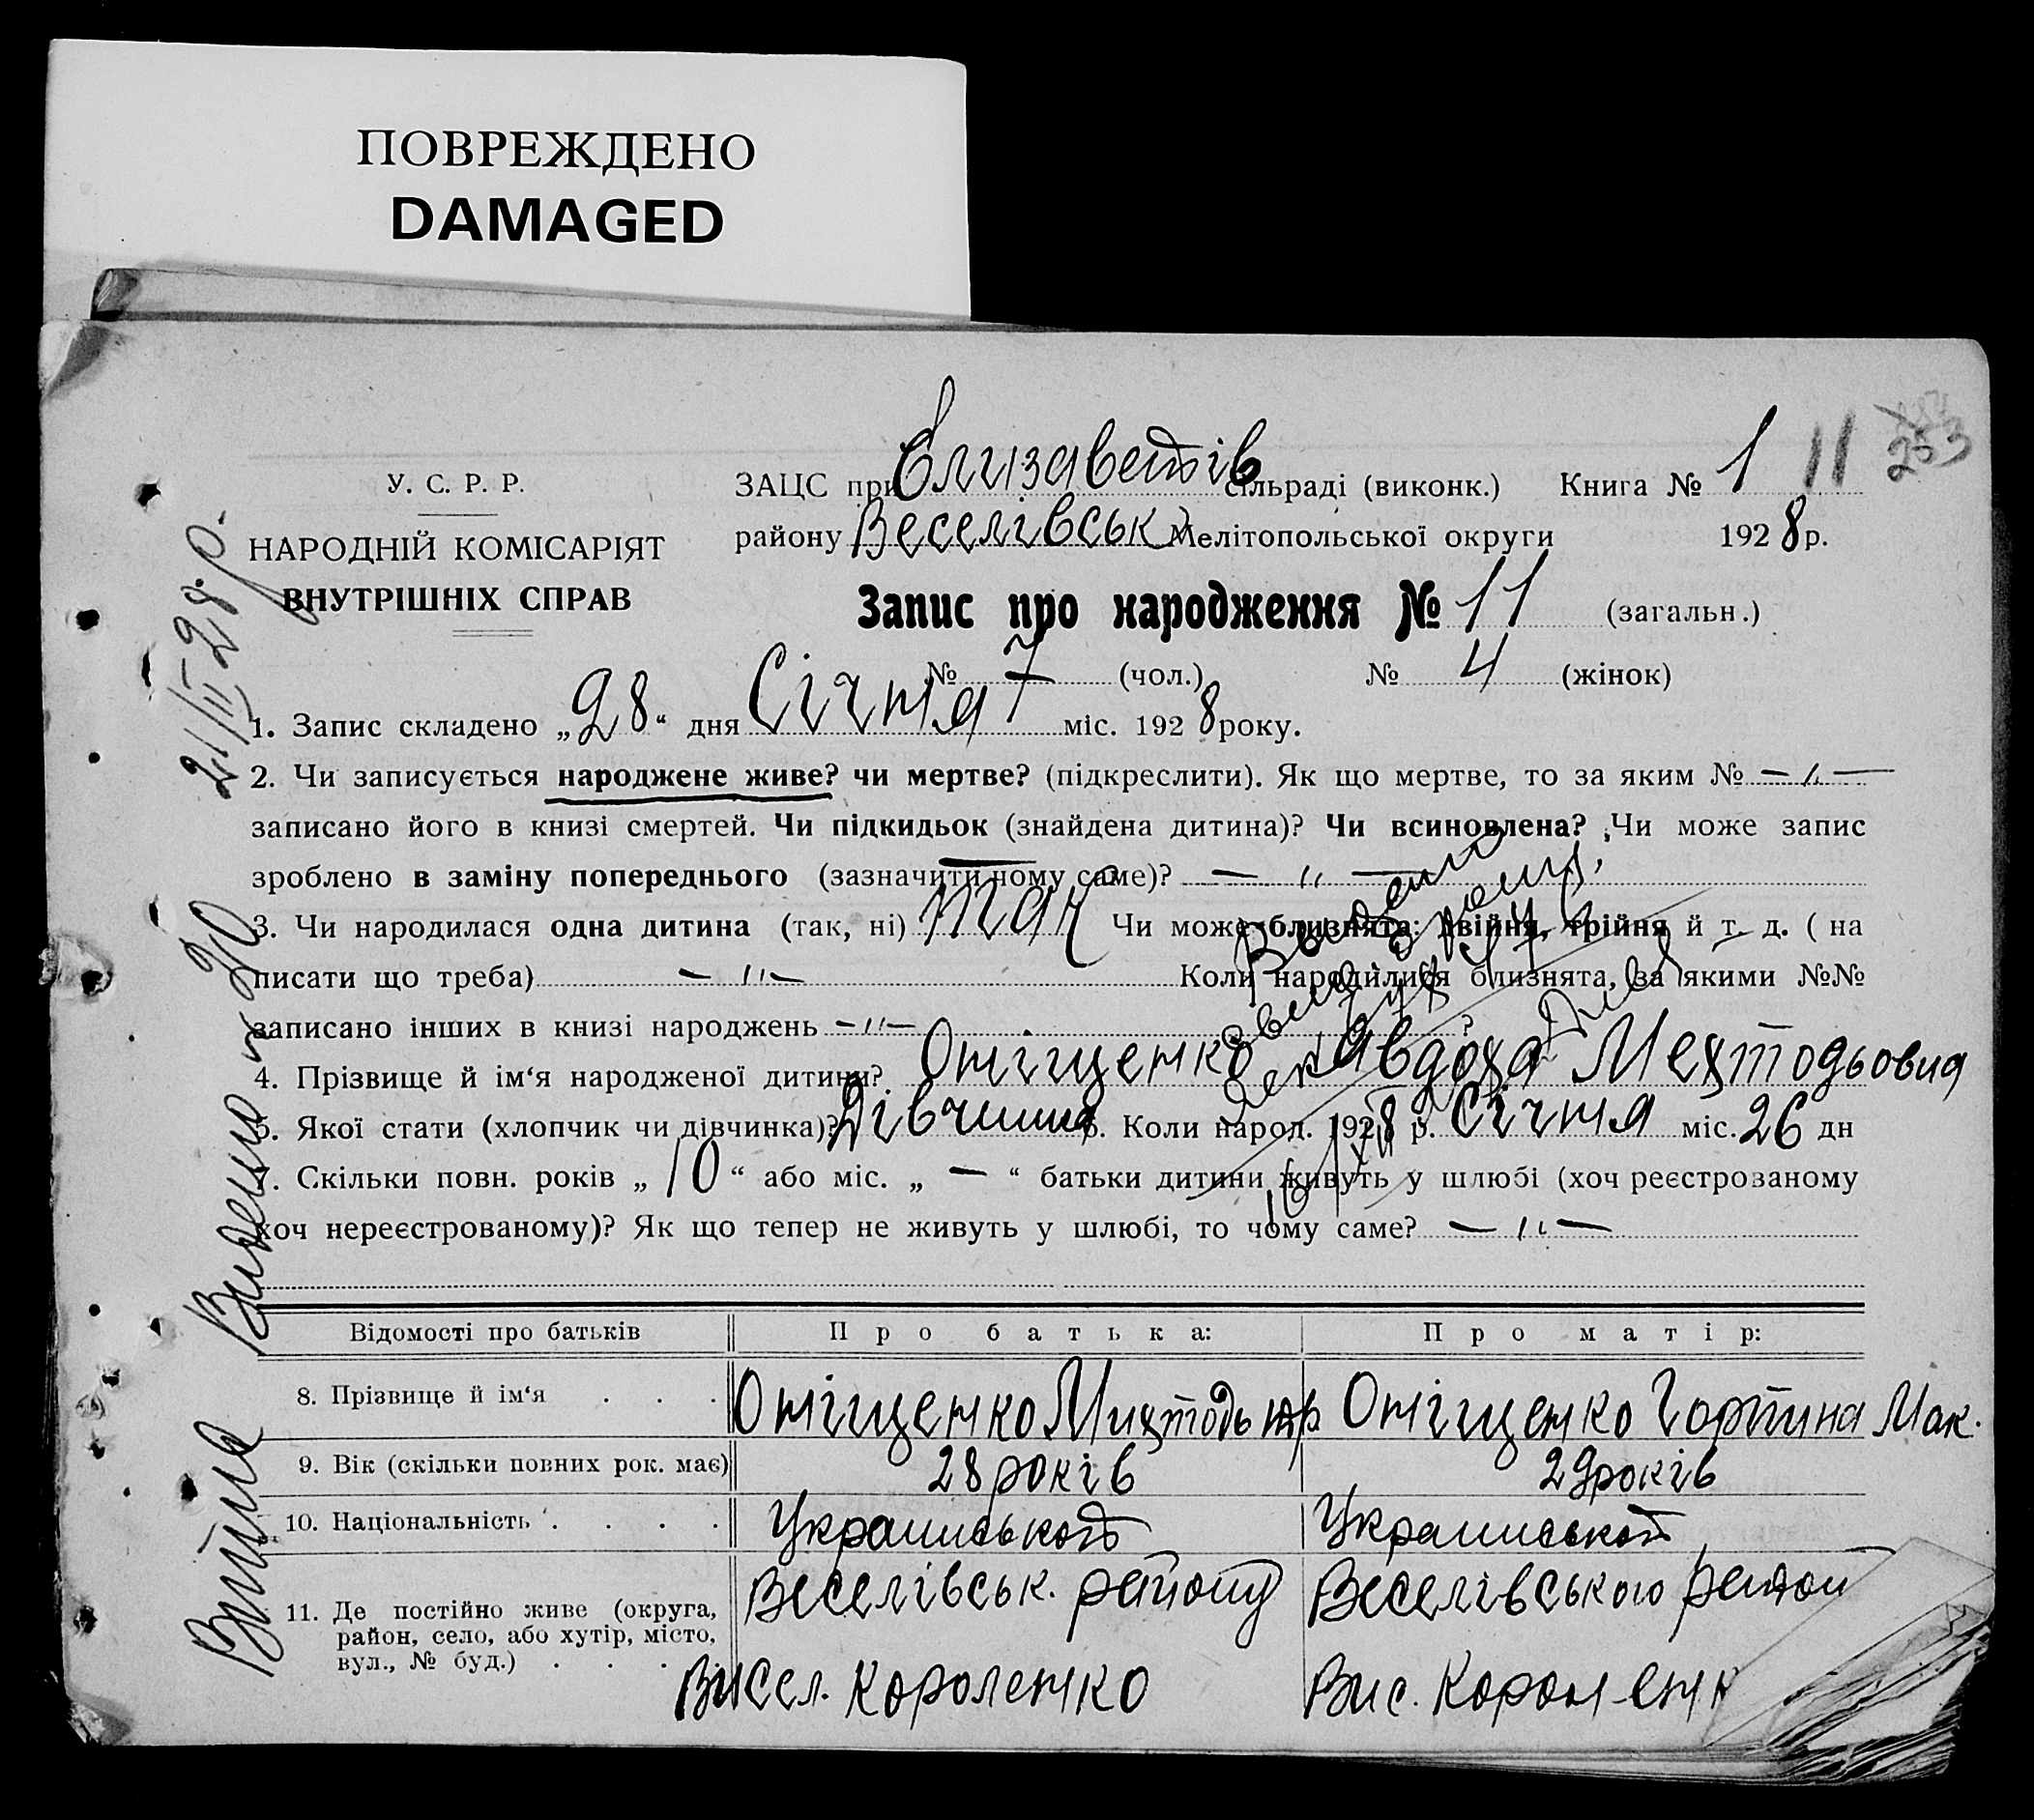 ПОВРЕЖДЕНО
DAMAGED
11 253
У. С. Р. Р.
НАРОДНІЙ КОМІСАРІЯТ
ВНУТРІШНІХ СПРАВ
ЗАЦС при Елизаветів сільраді (виконк.) Книга № 1
району Веселівськ Мелітопольської округи 1928 р.
Запис про народження № 11 (загальн.)
№ 7 (чол.) № 4 (жінок)
1. Запис складено „28“ дня Січня міс. 1928 року.
2. Чи записується народжене живе? чи мертве? (підкреслити). Як що мертве, то за яким № — „ —
записано його в книзі смертей. Чи підкидьок (знайдена дитина)? Чи всиновлена? Чи може запис
зроблено в заміну попереднього (зазначити чому саме)? — „ —
3. Чи народилася одна дитина (так, ні) так Чи може близнята: двійня, трійня й т. д. ( на
писати що треба) — „ — Коли народилися близнята, за якими №№
записано інших в книзі народжень — „ — ?
4. Прізвище й ім‘я народженої дитини? Оніщенко Авдоця
5. Якої стати (хлопчик чи дівчинка)? Дівчина 6. Коли народ. 1928 р. Січня міс. 26 дн
7. Скільки повн. років „10“ або міс. „—“ батьки дитини живуть у шлюбі (хоч реєстрованому
хоч нереєстрованому)? Як що тепер не живуть у шлюбі, то чому саме? — „ —
Відомості про батьків Про батька: Про матір:
8. Прізвище й ім‘я . . . Оніщенко Оніщенко Горпина Мак.
9. Вік (скільки повних рок. має) 28 років 29 років
10. Національність . . . . Украиньськой Украинськой
11. Де постійно живе (округа, район, село, або хутір, місто, вул., № буд.) . . . .
Веселівськ. району Веселівського район
Висел. Короленко Вис. Короленк
Витяг Видено 21/II 28 р.